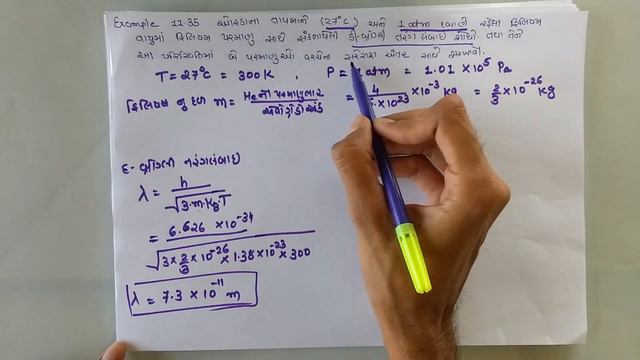 Example 11.35 ઓરડાના તાપમાને (27°C) અને 1 atm દબાણે રહેલા હિલિયમ
વાયુમાં હિલિયમ પરમાણુ સાથે સંકળાયેલી ડી-બ્રોગ્લી તરંગ લંબાઈ શોધો. તથા તેને
આ પરિસ્થિતિમાં બે પરમાણુઓ વચ્ચેના સરેરાશ અંતર સાથે સરખાવો.
T = 27°C = 300 K , P = 1 atm = 1.01 × 10⁵ Pa
હિલિયમ નું દળ m = Heનો પરમાણુભાર / એવોગેડ્રો અંક = 4 / × 10²³ × 10⁻³ kg = 2/3 × 10⁻²⁶ kg
દ-બ્રોગ્લી તરંગલંબાઇ
λ = h / √3·m·k_BT
= 6.626 × 10⁻³⁴ / √3 × 2/3 × 10⁻²⁶ × 1.38 × 10⁻²³ × 300
λ = 7.3 × 10⁻¹¹ m